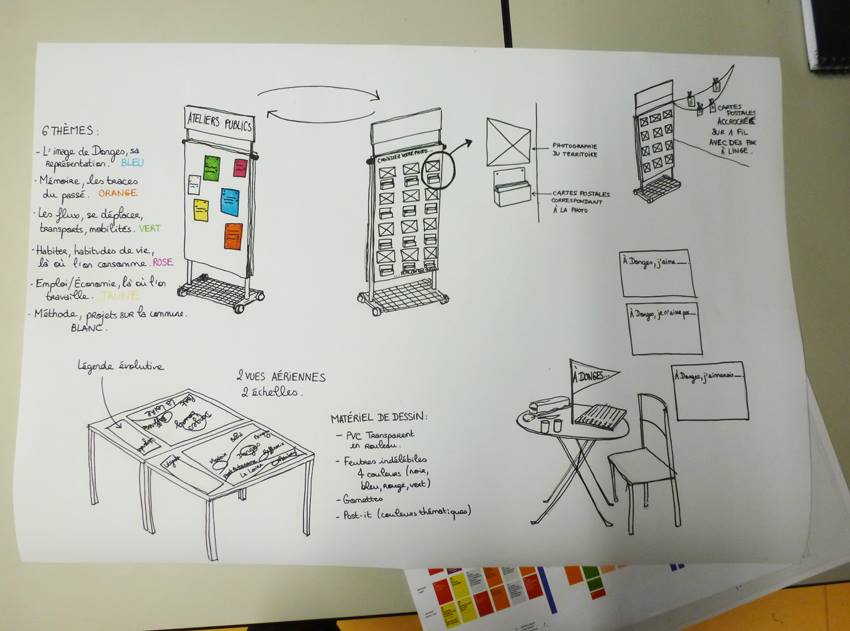 6 THÈMES :
- L'image de Donges, sa
représentation. BLEU
- Mémoire, les traces
du passé. ORANGE
- Les flux, se déplacer,
transports, mobilités. VERT
- Habiter, habitudes de vie,
là où l'on consomme. ROSE
- Emploi/Économie, là où l'on
travaille. JAUNE
- Méthode, projets sur la commune.
BLANC.
ATELIERS PUBLICS
CHOISISSEZ VOTRE PHOTO
PHOTOGRAPHIE
DU TERRITOIRE
CARTES POSTALES
CORRESPONDANT
À LA PHOTO
CARTES
POSTALES
ACCROCHÉES
SUR 1 FIL
AVEC DES
À LINGE.
À Donges, j'aime
À Donges, je n'aime pas
À Donges, j'aimerais
Légende évolutive
2 VUES AÉRIENNES
2 échelles.
Légende
Donges
La Loire
MATÉRIEL DE DESSIN :
- PVC Transparent
en rouleau.
- Feutres indélébiles
4 couleurs (noir,
bleu, rouge, vert)
- Gomettes
- Post-it (couleurs thématiques)
À DONGES...